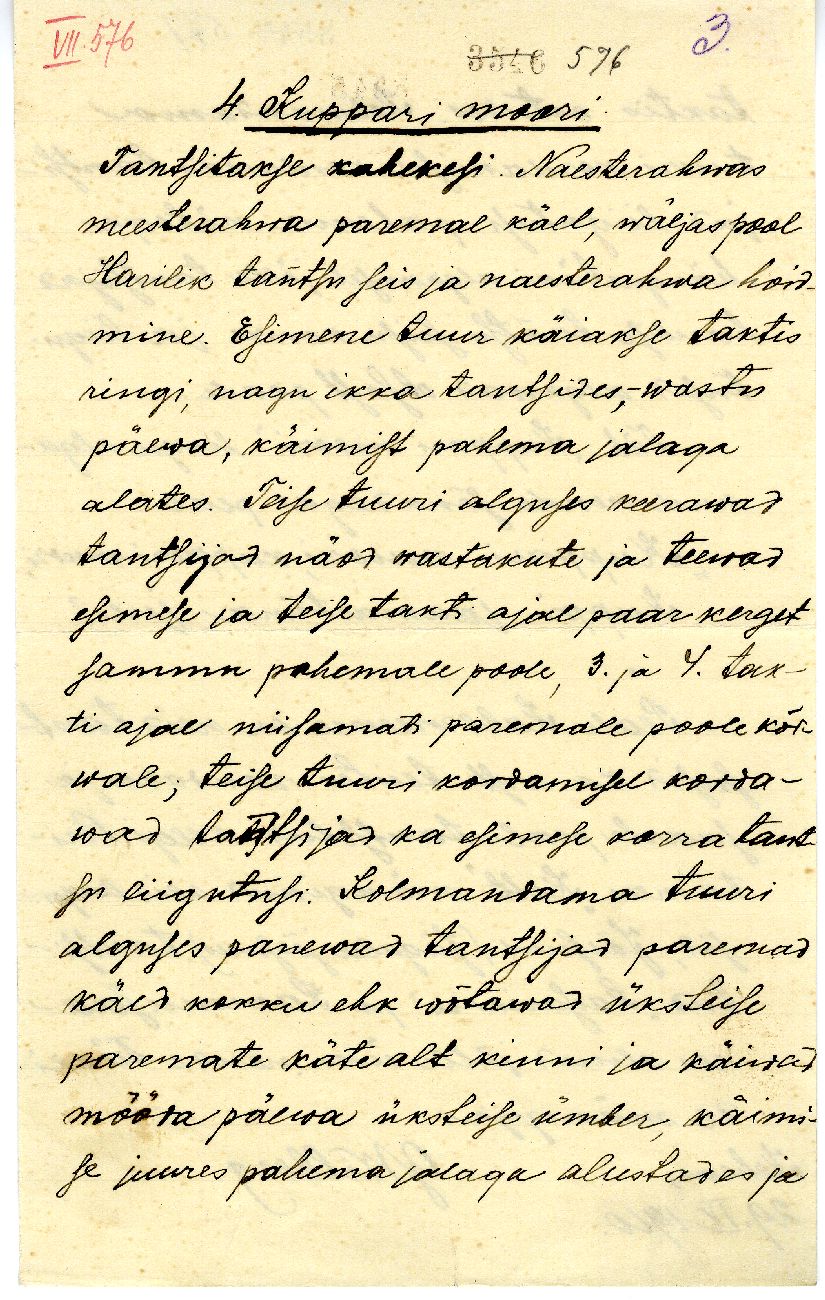 VII. 576
3546 576
3.
4. Kuppari moori.
Tantsitakse kahekesi. Naesterahwas
meesterahwa paremal käel, wäljaspool
Harilik tantsu seis ja naesterahwa hoid-
mine. Esimene tuur käiakse taktis
ringi, nagu ikka tantsides, – wastu
päewa, käimist pahema jalaga
alates. Teise tuuri alguses keerawad
tantsijad näod wastakute ja teewad
esimese ja teise takti ajal paar kerget
sammu pahemale poole, 3. ja 4. tak-
ti ajal niisamati paremale poole kõr-
wale; teise tuuri kordamisel korda-
wad tantsijad ka esimese korra tant-
su liigutusi. Kolmandama tuuri
alguses panewad tantsijad paremad
käed kokku ehk wõtawad üksteise
paremate käte alt kinni ja käiwad
mööda päewa üksteise ümber, käimi-
se juures pahema jalaga alustades ja